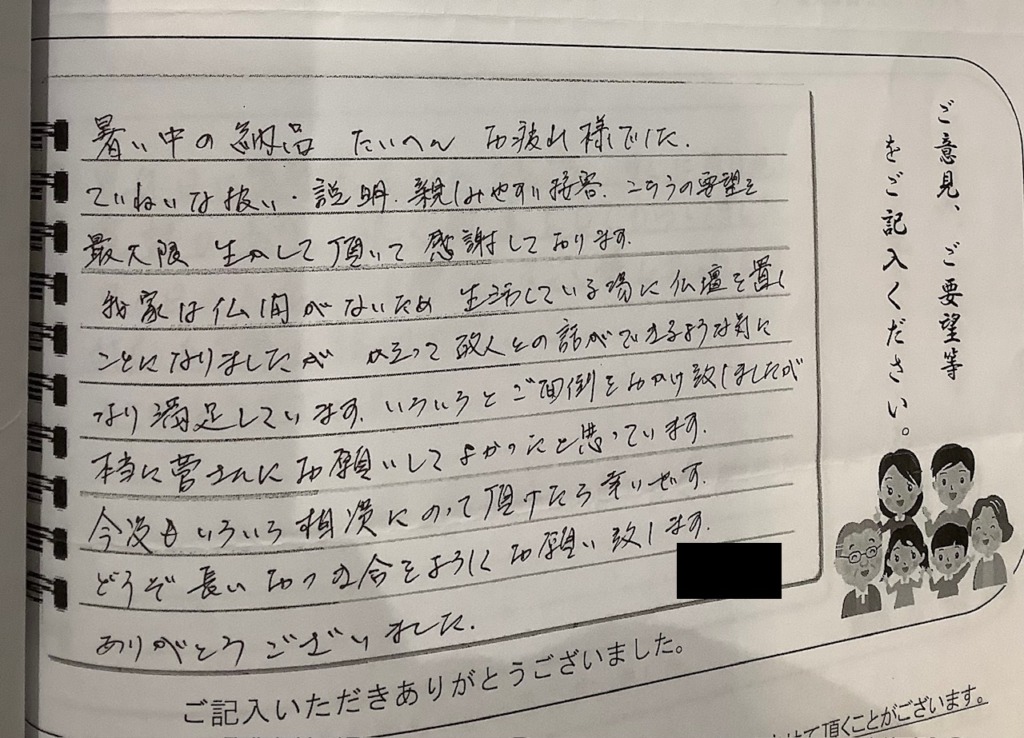 ご意見、ご要望等
をご記入ください。
暑い中の納品 たいへん お疲れ様でした.
ていねいな扱い・説明.親しみやすい接客.こちらの要望を
最大限 生かして頂いて 感謝しております.
我家は仏間がないため 生活している場に仏壇を置く
ことになりましたが かえって故人との話ができるような気に
なり満足しています.いろいろとご面倒をおかけ致しましたが
本当に菅さんにお願いしてよかったと思っています.
今後もいろいろ相談にのって頂けたら幸いです.
どうぞ長いおつき合をようにお願い致します.
ありがとうございました.
ご記入いただきありがとうございました。
て頂くことがございます。